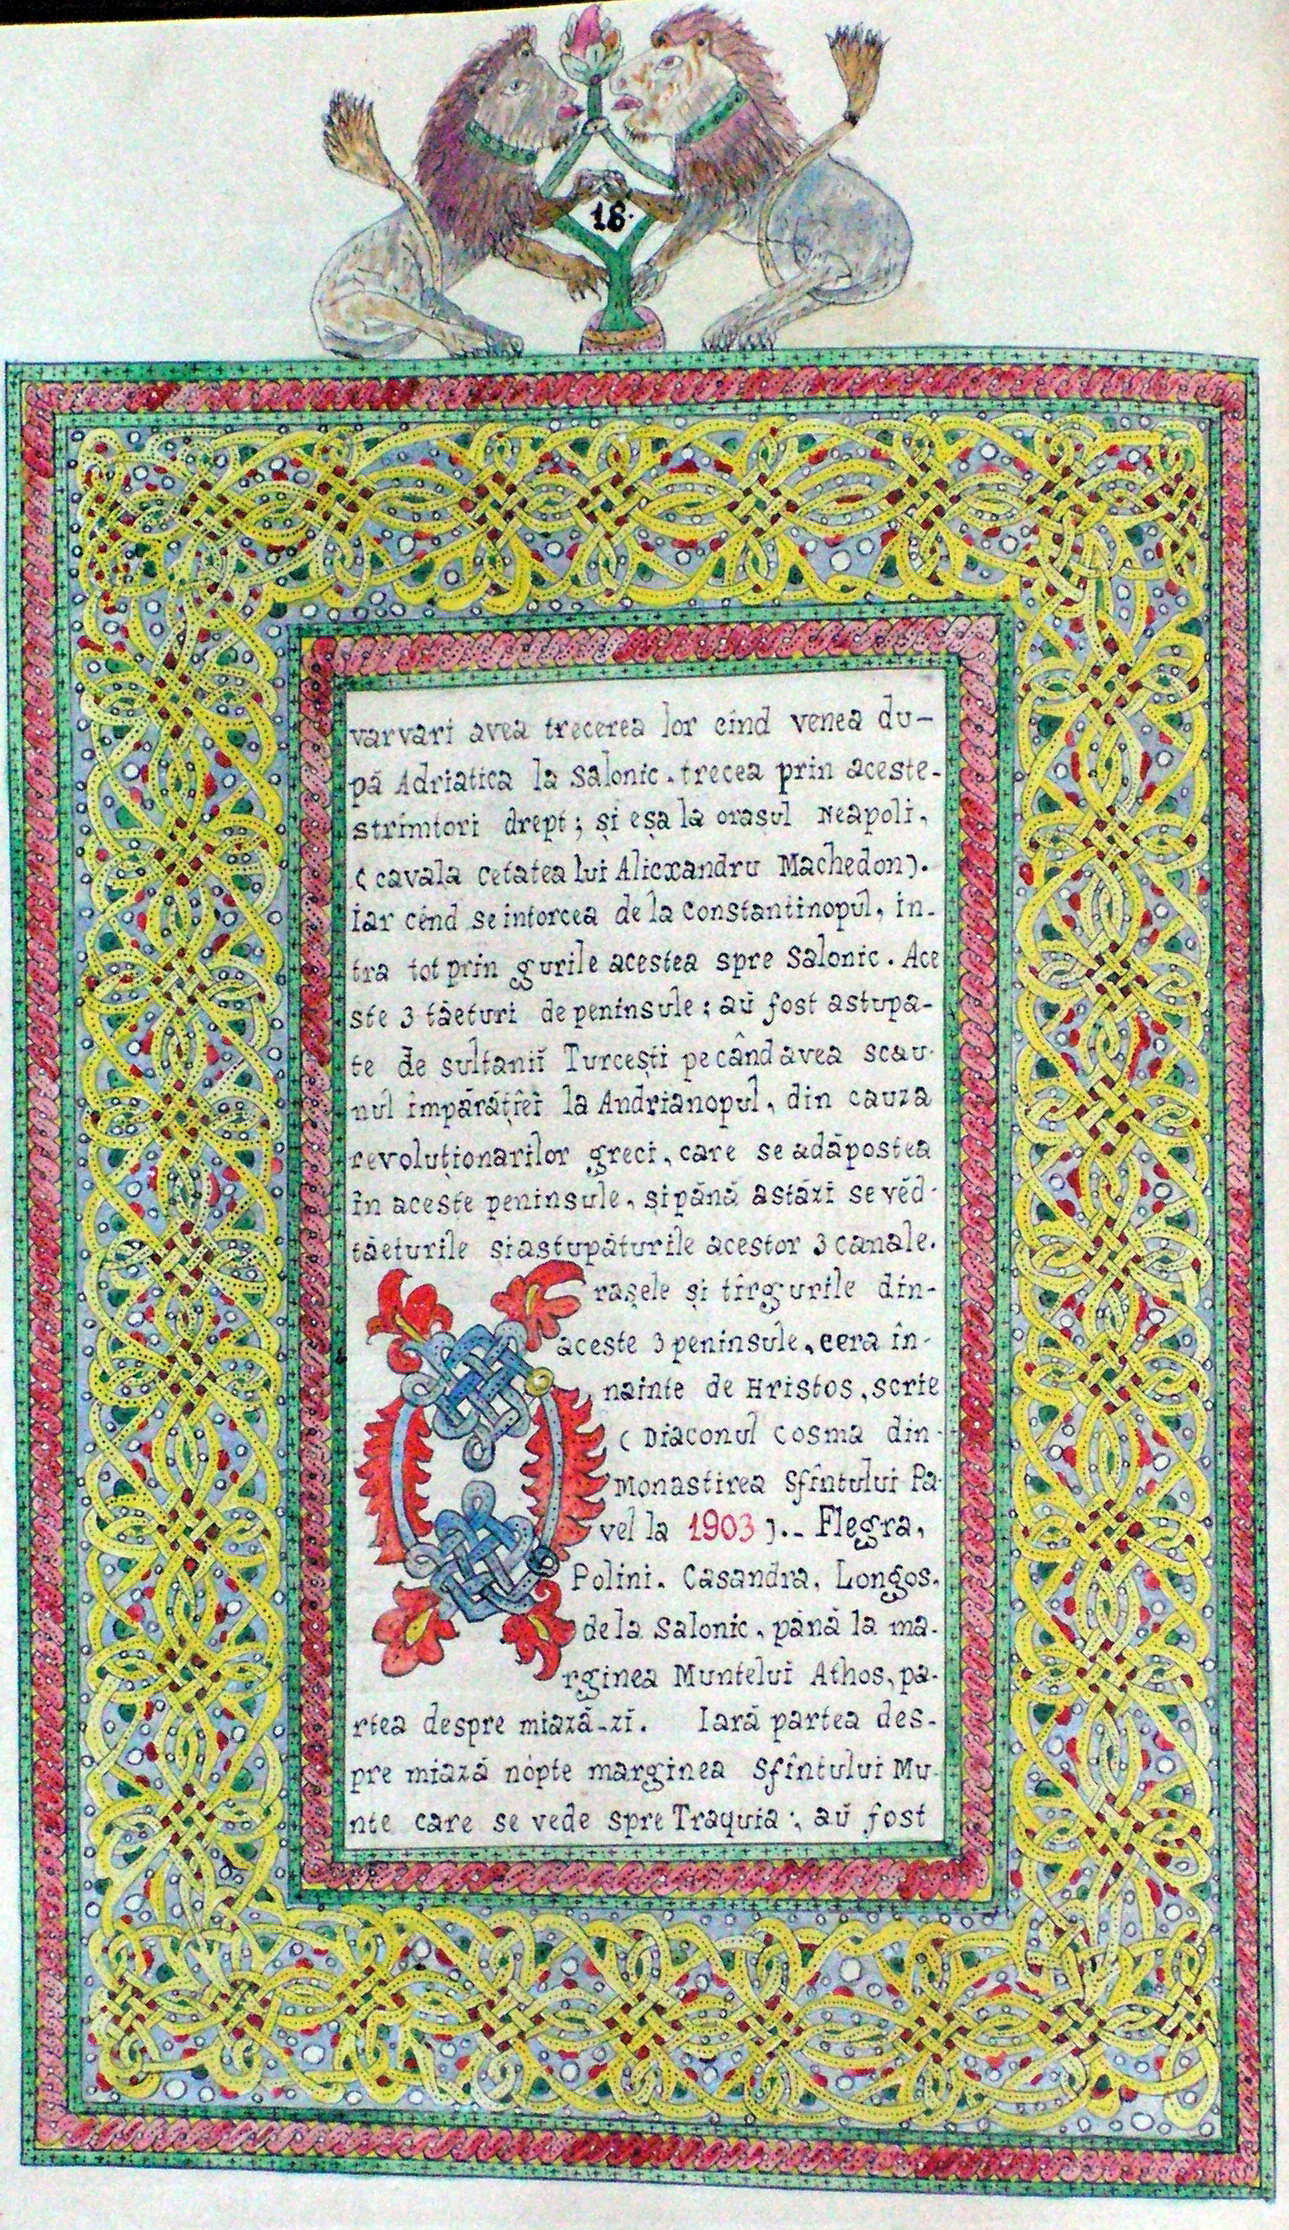 18.
varvari avea trecerea lor cînd venea du-
pă Adriatica la Salonic. trecea prin aceste-
strimtori drept; și eșa la orasul Neapoli,
(cavala cetatea lui Alicxandru Machedon).
iar cénd se intorcea de la Constantinopul, in-
tra tot prin gurile acestea spre Salonic. Ace
ste 3 tăeturi de peninsule; aŭ fost astupa-
te de sultaniĭ Turcești pe când avea scau-
nul împărățîeĭ la Andrianopul, din cauza
revoluționarilor greci, care se adăpostea
în aceste peninsule, și până astăzĭ se vĕd-
tăeturile si astupăturile acestor 3 canale.
Orașele și tîrgurile din-
aceste 3 peninsule, cera în-
nainte de Hristos, scrie
(Diaconul Cosma din-
Monastirea Sfîntului Pa-
vel la 1903).- Flegra,
Polini. Casandra. Longos.
de la Salonic, până la ma-
rginea Munteluĭ Athos, pa-
rtea despre miază-zĭ. Iară partea des-
pre miază nópte marginea Sfîntului Mu-
nte care se vede spre Traquia; aŭ fost